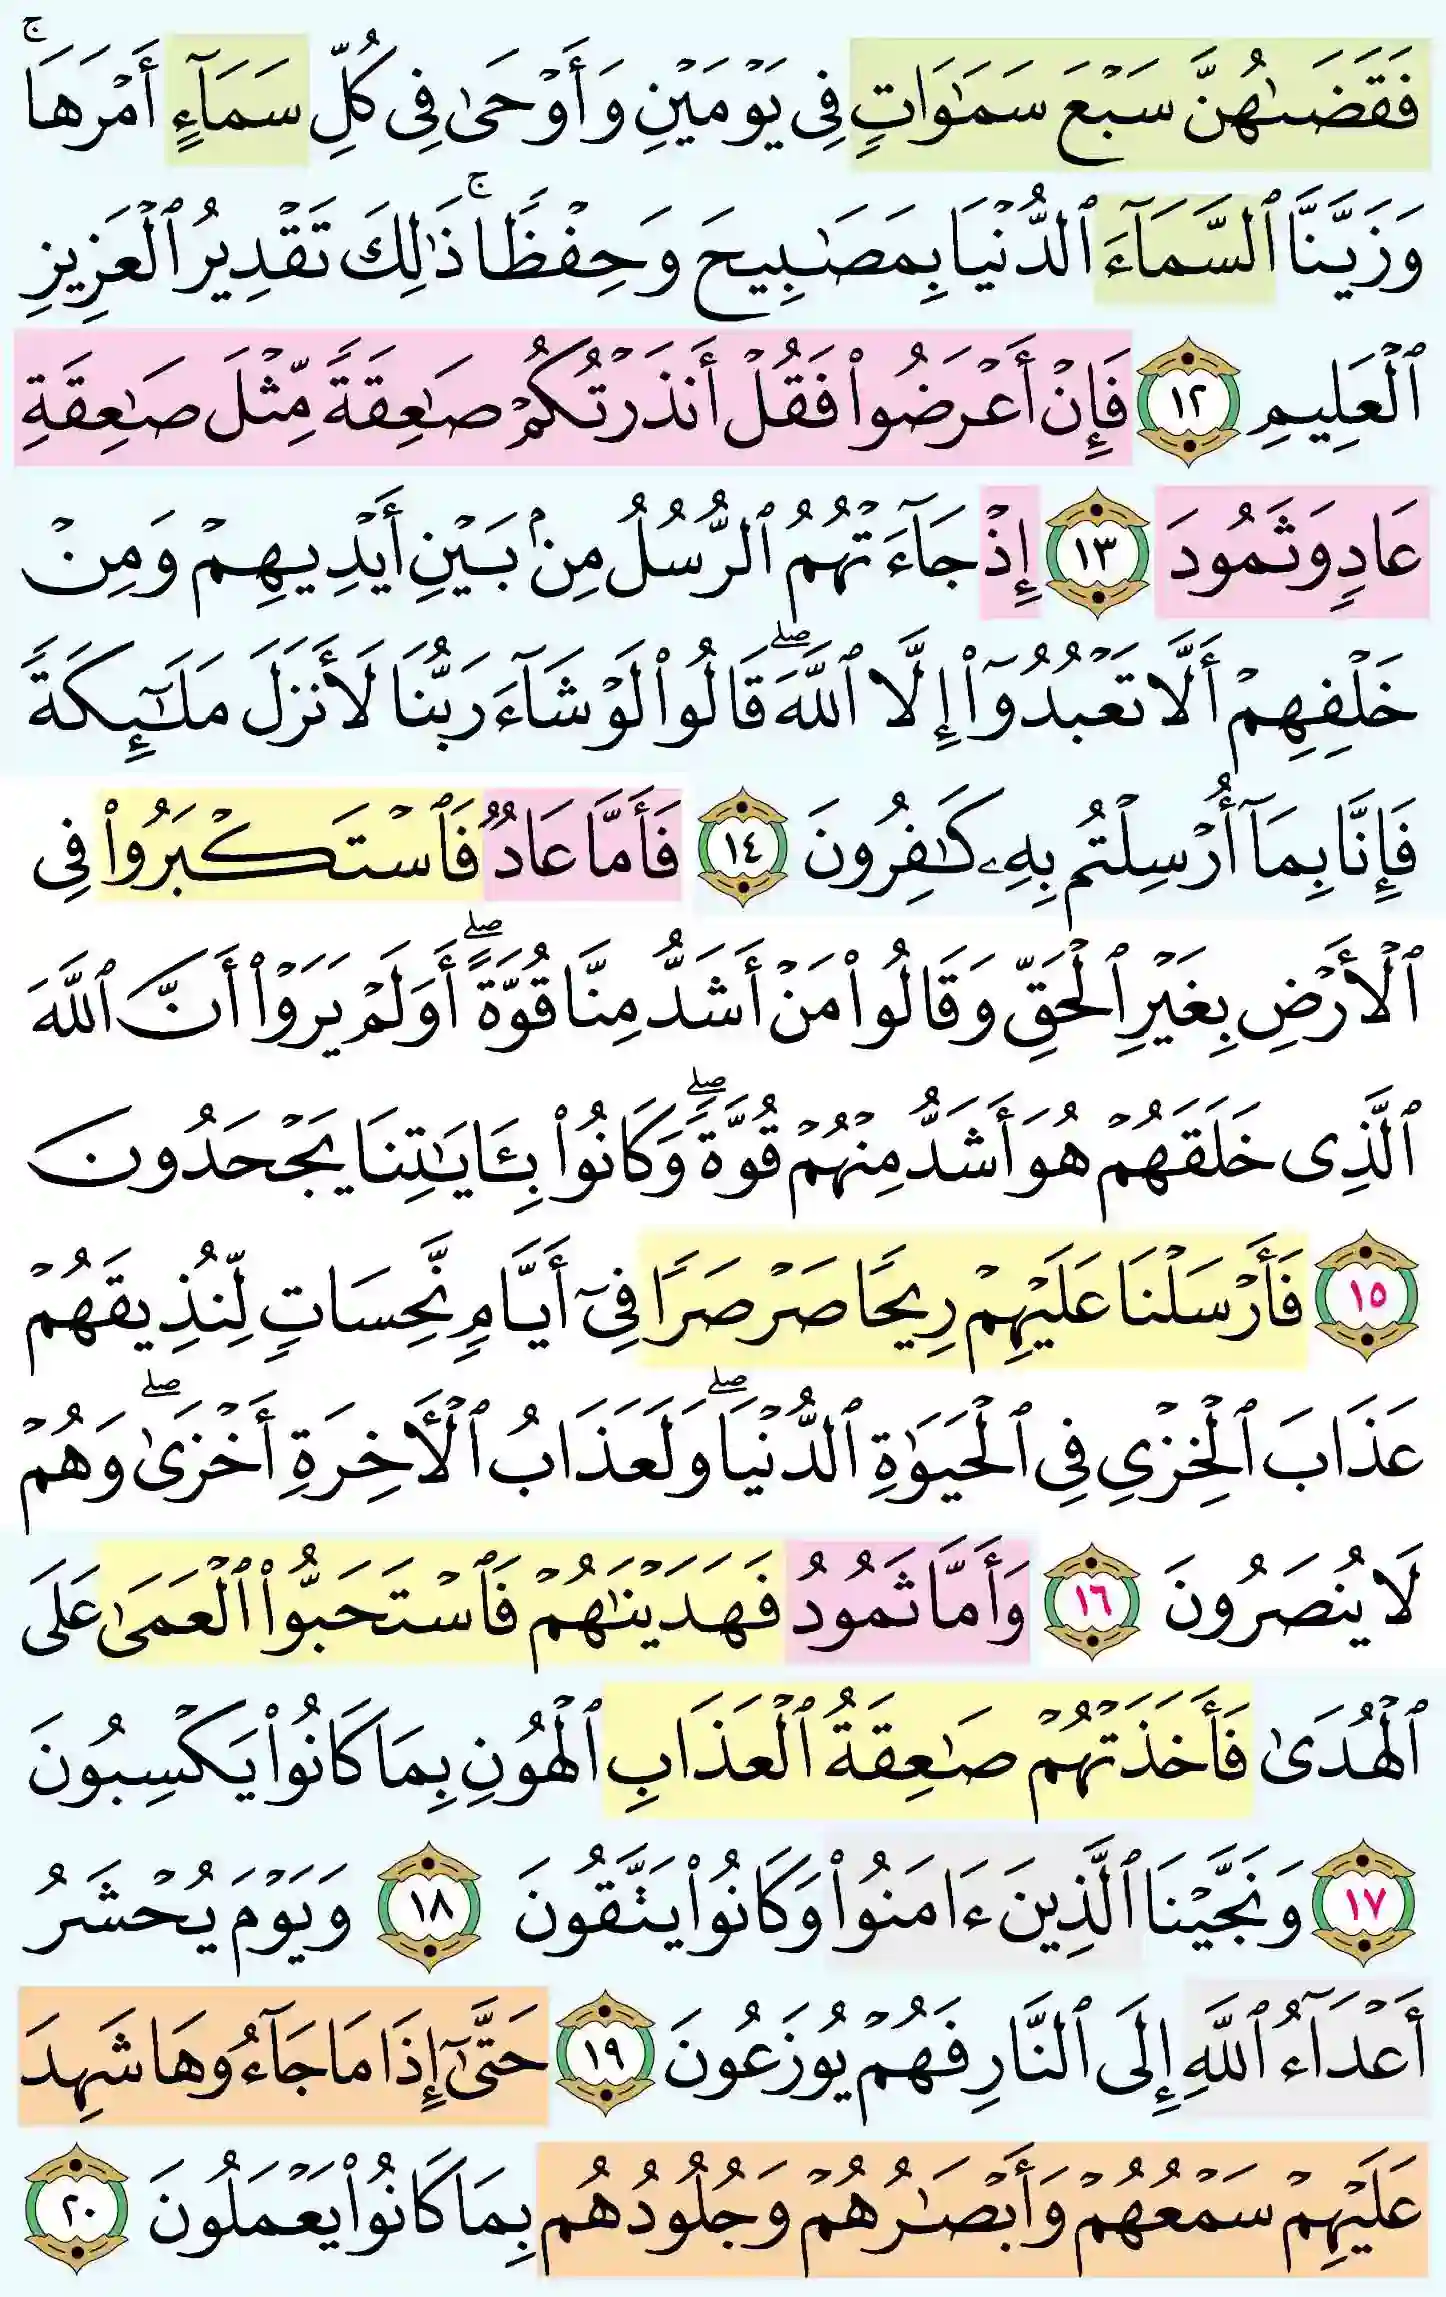 فَقَضَىٰهُنَّ سَبْعَ سَمَٰوَاتٍ فِى يَوْمَيْنِ وَأَوْحَىٰ فِى كُلِّ سَمَآءٍ أَمْرَهَا ۚ
وَزَيَّنَّا ٱلسَّمَآءَ ٱلدُّنْيَا بِمَصَٰبِيحَ وَحِفْظًا ۚ ذَٰلِكَ تَقْدِيرُ ٱلْعَزِيزِ
ٱلْعَلِيمِ ١٢ فَإِنْ أَعْرَضُوا۟ فَقُلْ أَنذَرْتُكُمْ صَٰعِقَةً مِّثْلَ صَٰعِقَةِ
عَادٍ وَثَمُودَ ١٣ إِذْ جَآءَتْهُمُ ٱلرُّسُلُ مِنۢ بَيْنِ أَيْدِيهِمْ وَمِنْ
خَلْفِهِمْ أَلَّا تَعْبُدُوٓا۟ إِلَّا ٱللَّهَ ۖ قَالُوا۟ لَوْ شَآءَ رَبُّنَا لَأَنزَلَ مَلَٰٓئِكَةً
فَإِنَّا بِمَآ أُرْسِلْتُم بِهِۦ كَٰفِرُونَ ١٤ فَأَمَّا عَادٌ فَٱسْتَكْبَرُوا۟ فِى
ٱلْأَرْضِ بِغَيْرِ ٱلْحَقِّ وَقَالُوا۟ مَنْ أَشَدُّ مِنَّا قُوَّةً ۖ أَوَلَمْ يَرَوْا۟ أَنَّ ٱللَّهَ
ٱلَّذِى خَلَقَهُمْ هُوَ أَشَدُّ مِنْهُمْ قُوَّةً ۖ وَكَانُوا۟ بِـَٔايَٰتِنَا يَجْحَدُونَ
١٥ فَأَرْسَلْنَا عَلَيْهِمْ رِيحًا صَرْصَرًا فِىٓ أَيَّامٍ نَّحِسَاتٍ لِّنُذِيقَهُمْ
عَذَابَ ٱلْخِزْىِ فِى ٱلْحَيَوٰةِ ٱلدُّنْيَا ۖ وَلَعَذَابُ ٱلْأَخِرَةِ أَخْزَىٰ ۖ وَهُمْ
لَا يُنصَرُونَ ١٦ وَأَمَّا ثَمُودُ فَهَدَيْنَٰهُمْ فَٱسْتَحَبُّوا۟ ٱلْعَمَىٰ عَلَى
ٱلْهُدَىٰ فَأَخَذَتْهُمْ صَٰعِقَةُ ٱلْعَذَابِ ٱلْهُونِ بِمَا كَانُوا۟ يَكْسِبُونَ
١٧ وَنَجَّيْنَا ٱلَّذِينَ ءَامَنُوا۟ وَكَانُوا۟ يَتَّقُونَ ١٨ وَيَوْمَ يُحْشَرُ
أَعْدَآءُ ٱللَّهِ إِلَى ٱلنَّارِ فَهُمْ يُوزَعُونَ ١٩ حَتَّىٰٓ إِذَا مَا جَآءُوهَا شَهِدَ
عَلَيْهِمْ سَمْعُهُمْ وَأَبْصَٰرُهُمْ وَجُلُودُهُم بِمَا كَانُوا۟ يَعْمَلُونَ ٢٠